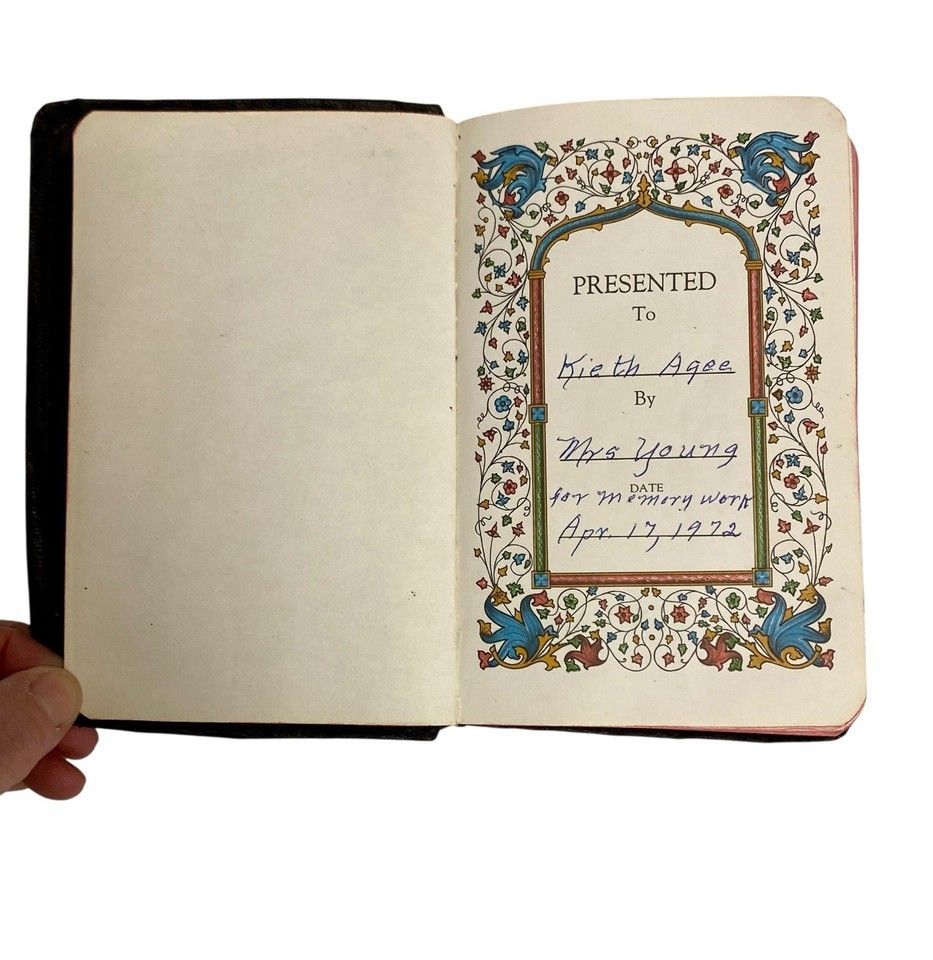 PRESENTED
To
Kieth Agee
By
Mrs Young
DATE
for Memory work
Apr. 17, 1972